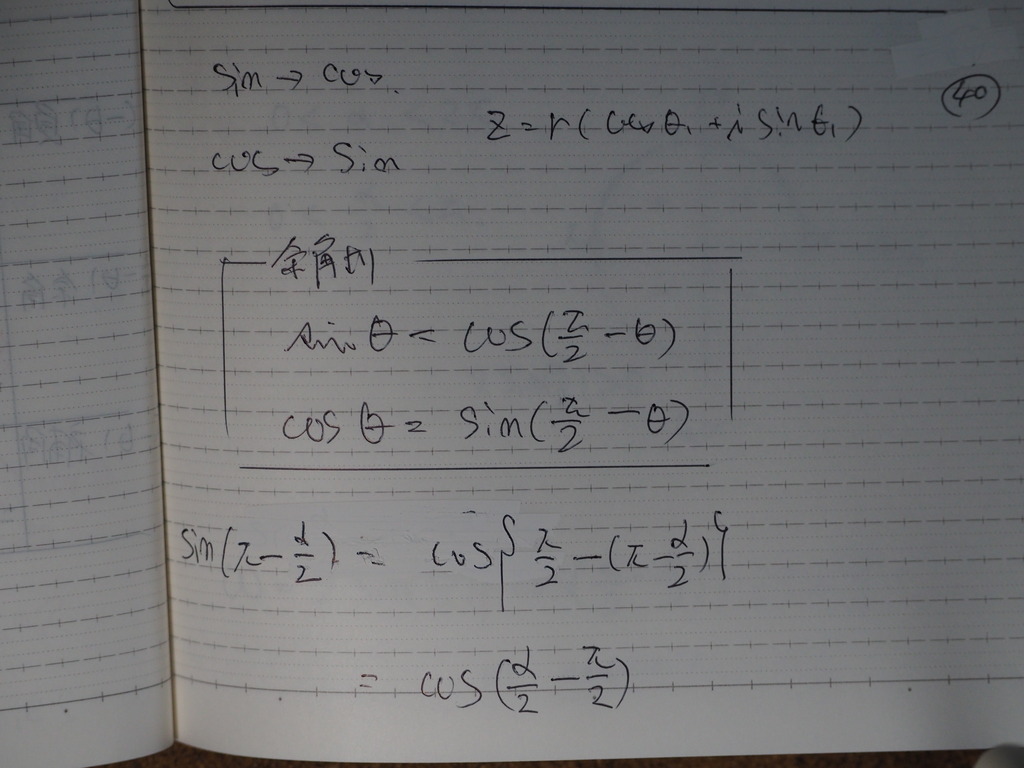 sin → cos.
㊵
z = r(cos θ₁ + i sin θ₁)
cos → sin
余角公式
sin θ = cos(π/2 − θ)
cos θ = sin(π/2 − θ)
sin(π − α/2) = cos{π/2 − (π − α/2)}
= cos(α/2 − π/2)